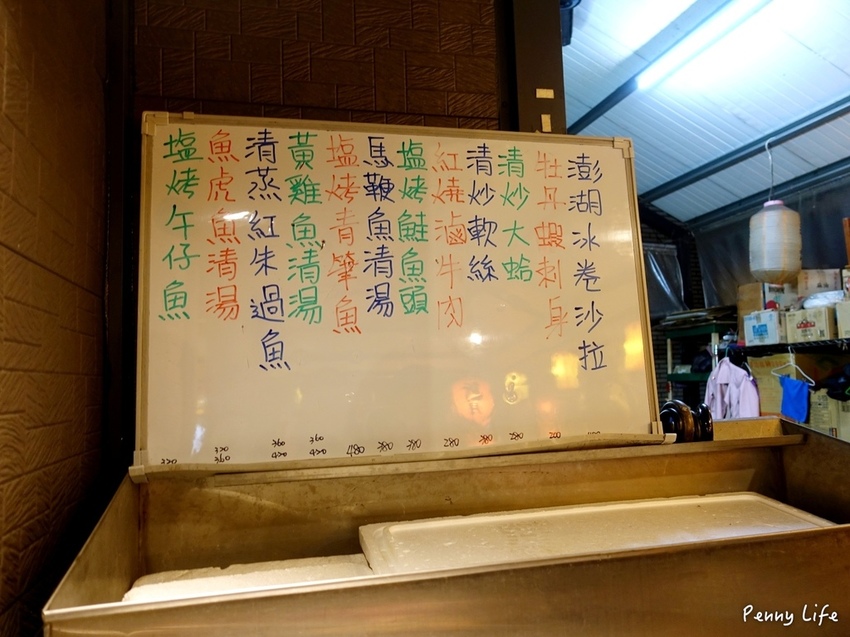 澎湖冰卷沙拉
牡丹蝦刺身 200
清炒大蛤 280
清炒軟絲 380
紅燒滷牛肉 280
塩烤鮭魚頭 380
馬鞭魚清湯 380
塩烤青箄魚 480
黃雞魚清湯 360 420
清蒸紅朱過魚 360 420
魚虎魚清湯 320 360
塩烤午仔魚 320
Penny Life